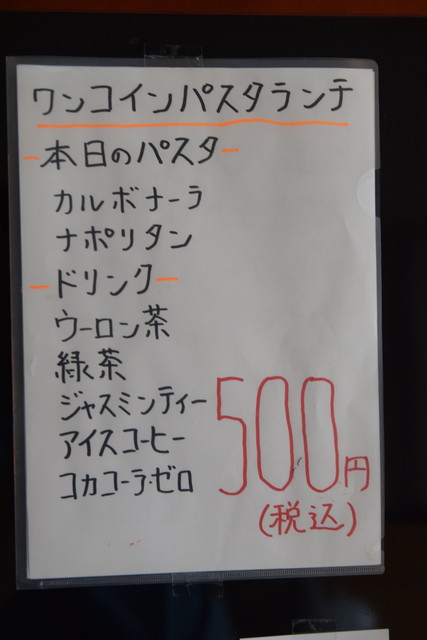 ワンコインパスタランチ
-本日のパスタ-
カルボナーラ
ナポリタン
-ドリンク-
ウーロン茶
緑茶
ジャスミンティー
アイスコーヒー
コカコーラ・ゼロ
500円
(税込)